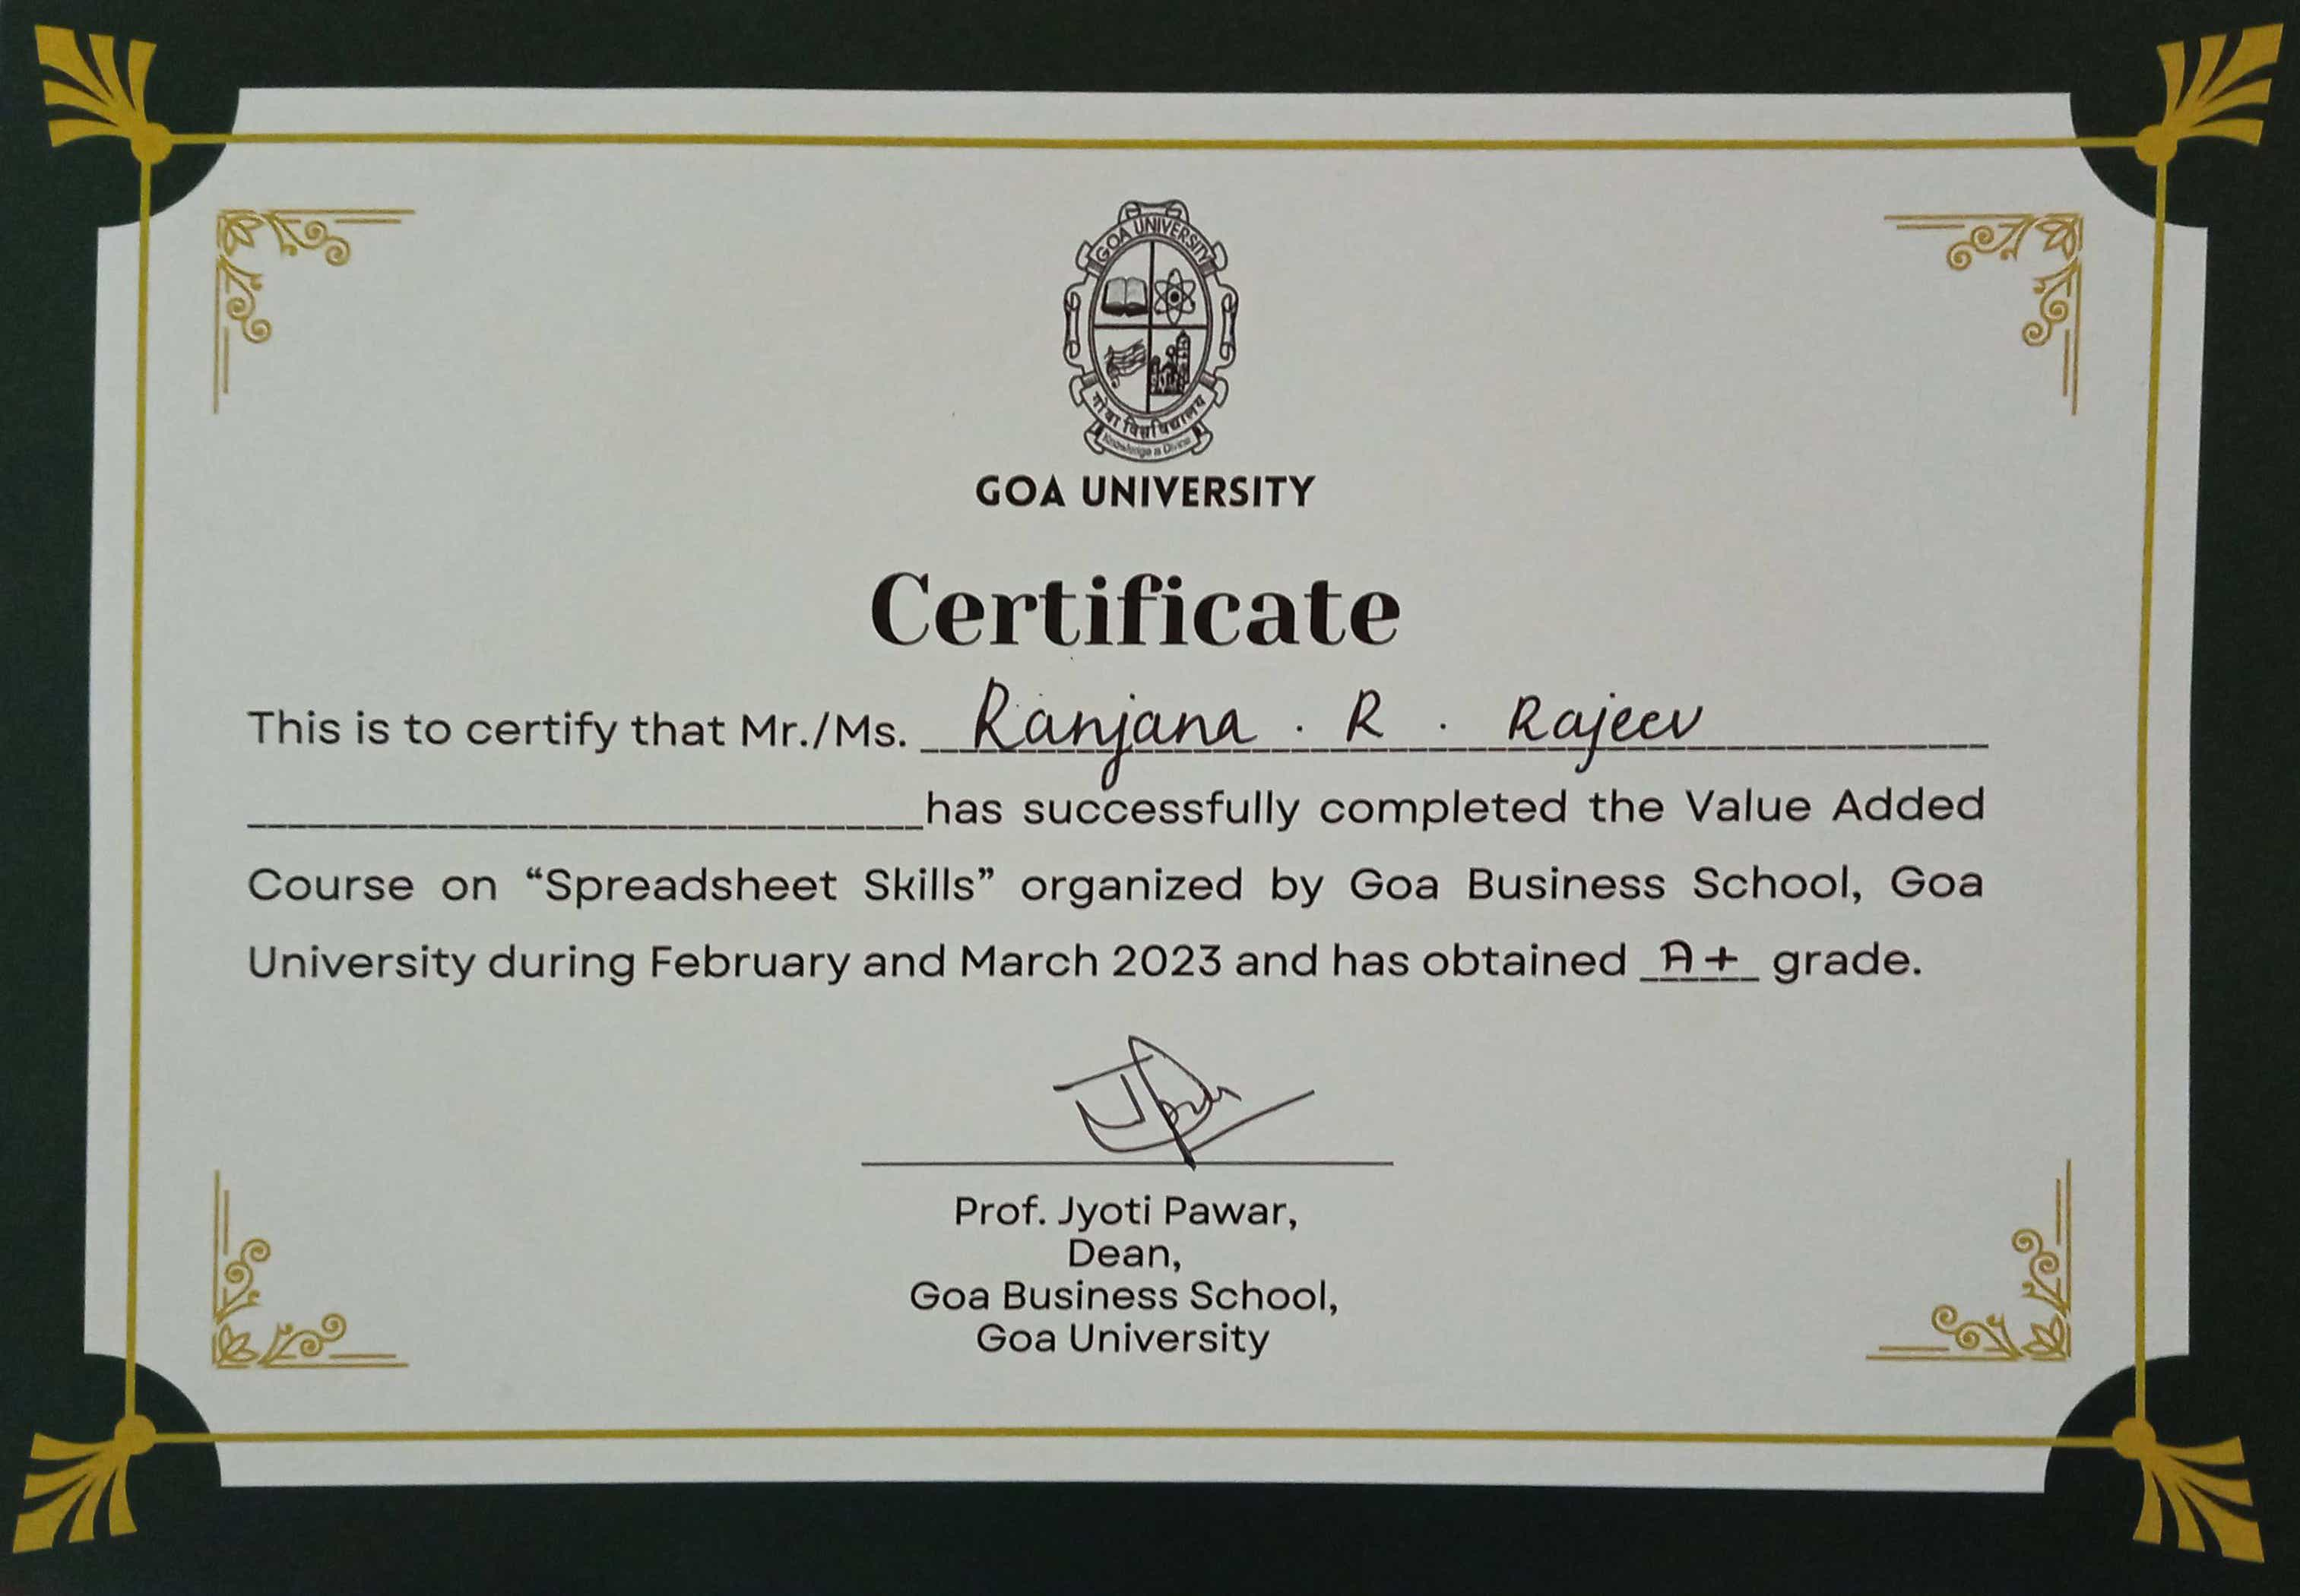 GOA UNIVERSITY
गोंवा विश्वविद्यालय
Knowledge is Divine
GOA UNIVERSITY
Certificate
This is to certify that Mr./Ms. Ranjana . R . Rajeev
has successfully completed the Value Added
Course on “Spreadsheet Skills” organized by Goa Business School, Goa
University during February and March 2023 and has obtained A+ grade.
Prof. Jyoti Pawar,
Dean,
Goa Business School,
Goa University